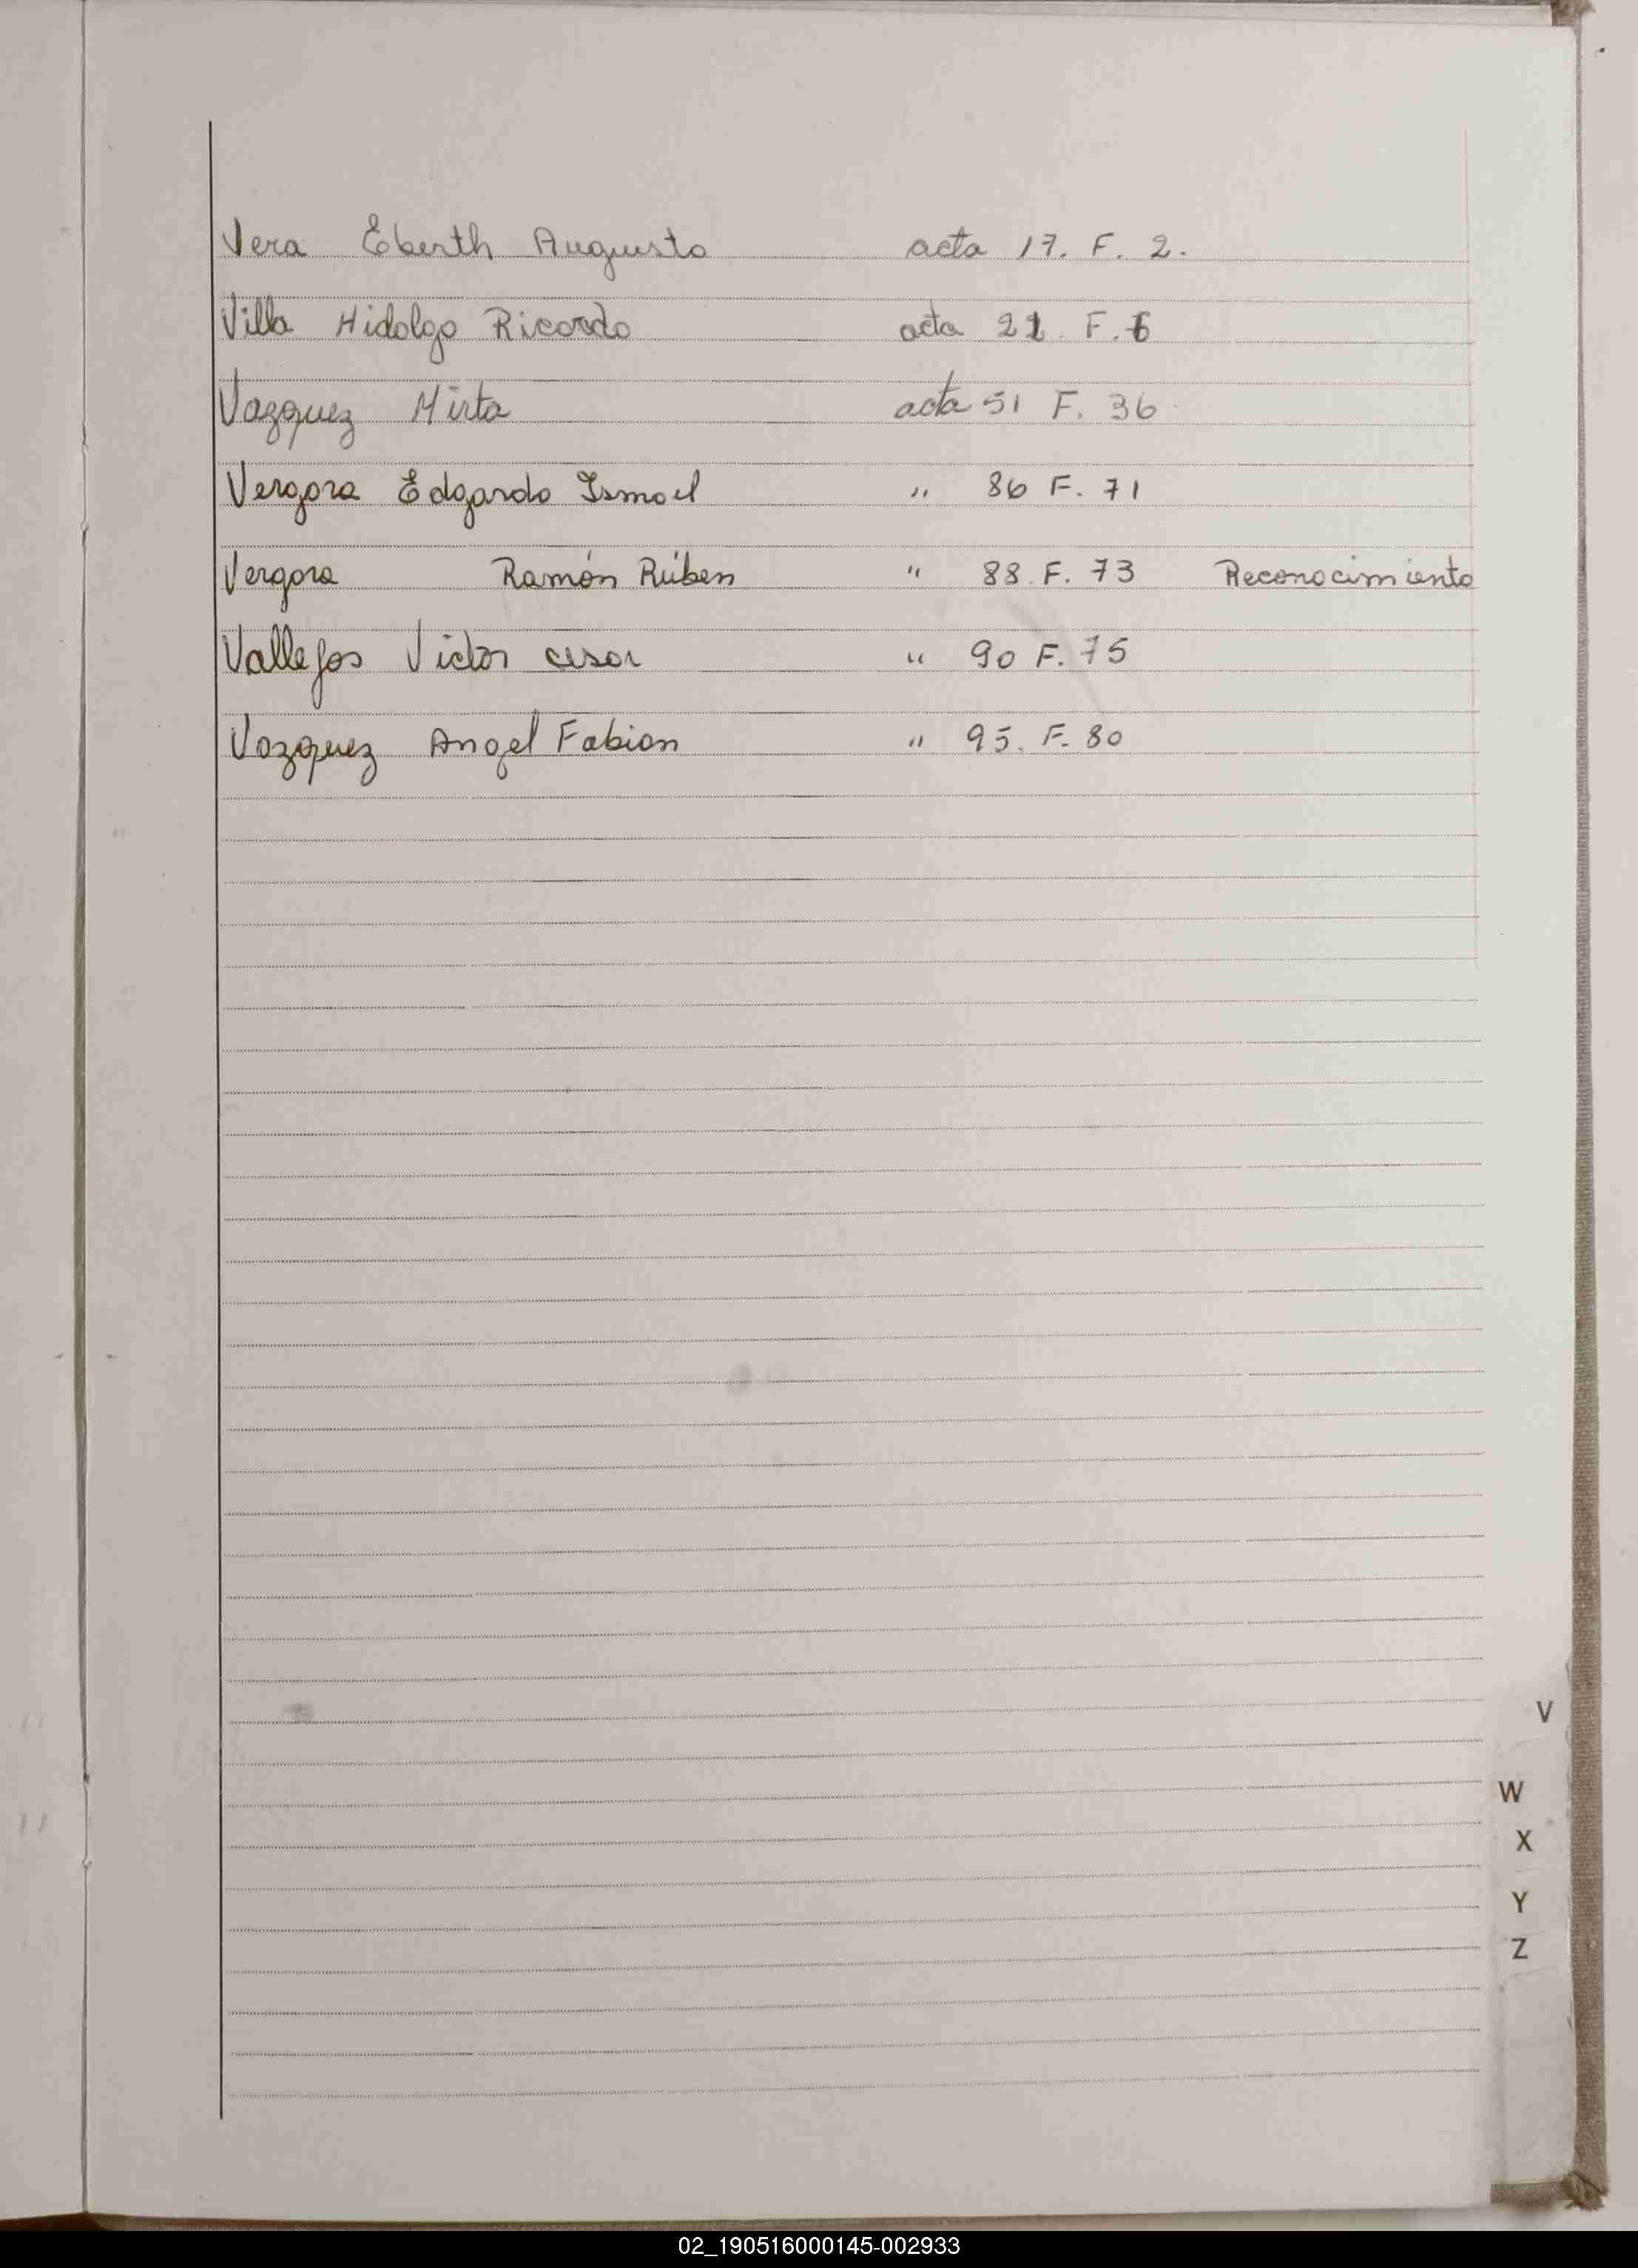 Vera Eberth Augusto acta 17. F. 2.
Villa Hidalgo Ricardo acta 21. F. 6
Vazquez Mirta acta 51 F. 36
Vergara Edgardo Ismael " 86 F. 71
Vergara Ramón Rúben " 88. F. 73 Reconocimiento
Vallejos Victor cesar " 90 F. 75
Vazquez Angel Fabian " 95. F. 80
V
W
X
Y
Z
02_190516000145-002933